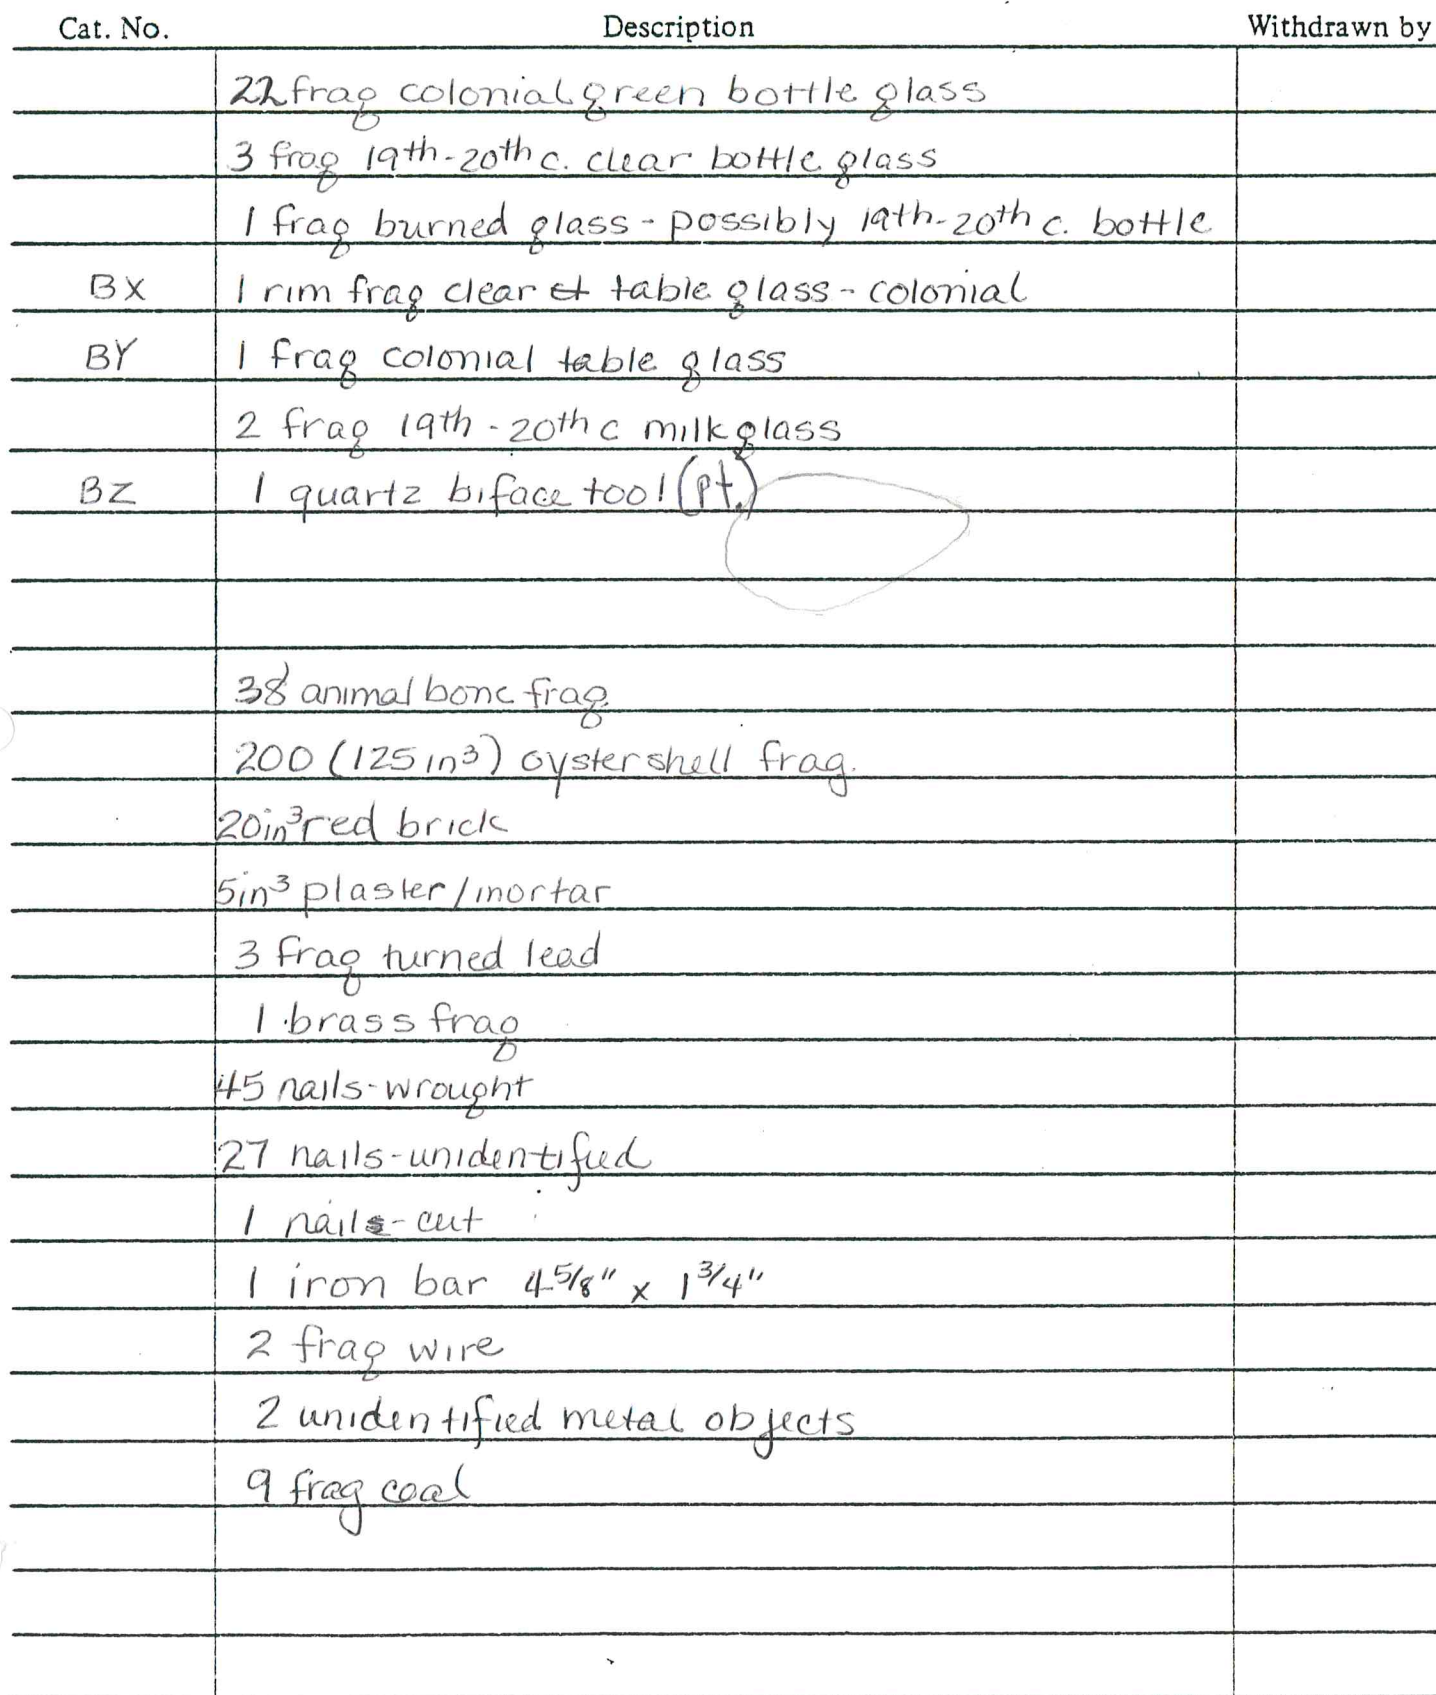 Cat. No. Description Withdrawn by
22 frag colonial green bottle glass
3 frag 19th-20th c. clear bottle glass
1 frag burned glass - possibly 19th-20th c. bottle
BX 1 rim frag clear table glass - colonial
BY 1 frag colonial table glass
2 frag 19th - 20th c milk glass
BZ 1 quartz biface tool (pt.)
38 animal bone frag
200 (125 in³) oyster shell frag.
20in³ red brick
5in³ plaster/mortar
3 frag turned lead
1 brass frag
45 nails-wrought
27 nails-unidentified
1 nail-cut
1 iron bar 4 5/8" x 1 3/4"
2 frag wire
2 unidentified metal objects
9 frag coal